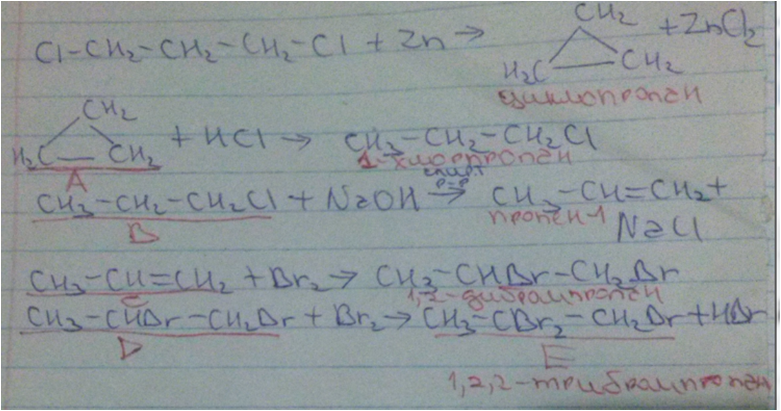 Cl-CH₂-CH₂-CH₂-Cl + Zn → CH₂ H₂C CH₂ + ZnCl₂
циклопропан
CH₂ H₂C CH₂ + HCl → CH₃-CH₂-CH₂Cl
A 1-хлорпропан
CH₃-CH₂-CH₂Cl + NaOH спирт р-р → CH₃-CH=CH₂ +
B пропен-1 NaCl
CH₃-CH=CH₂ + Br₂ → CH₃-CHBr-CH₂Br
C 1,2-дибромпропан
CH₃-CHBr-CH₂Br + Br₂ → CH₃-CBr₂-CH₂Br + HBr
D E
1,2,2-трибромпропан